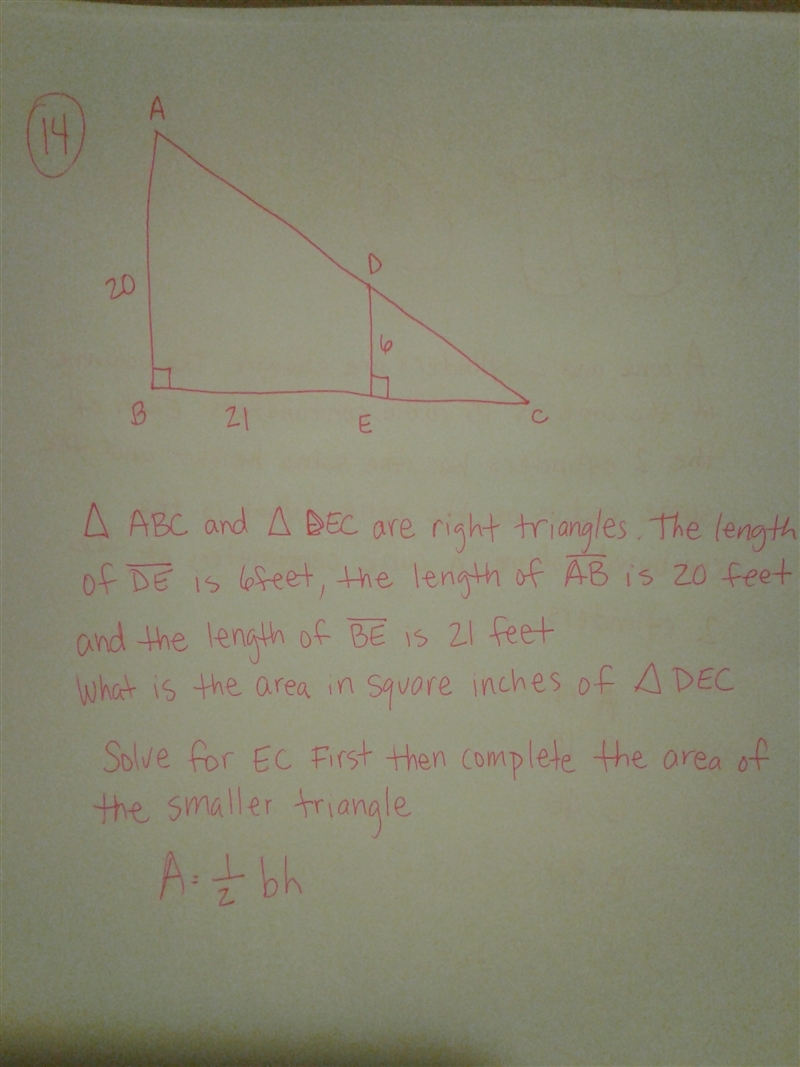 14
A
D
20
6
B
21
E
C
Δ ABC and Δ DEC are right triangles. The length
of DE is 6feet, the length of AB is 20 feet
and the length of BE is 21 feet
What is the area in square inches of Δ DEC
Solve for EC First then complete the area of
the smaller triangle
A = 1/2 bh